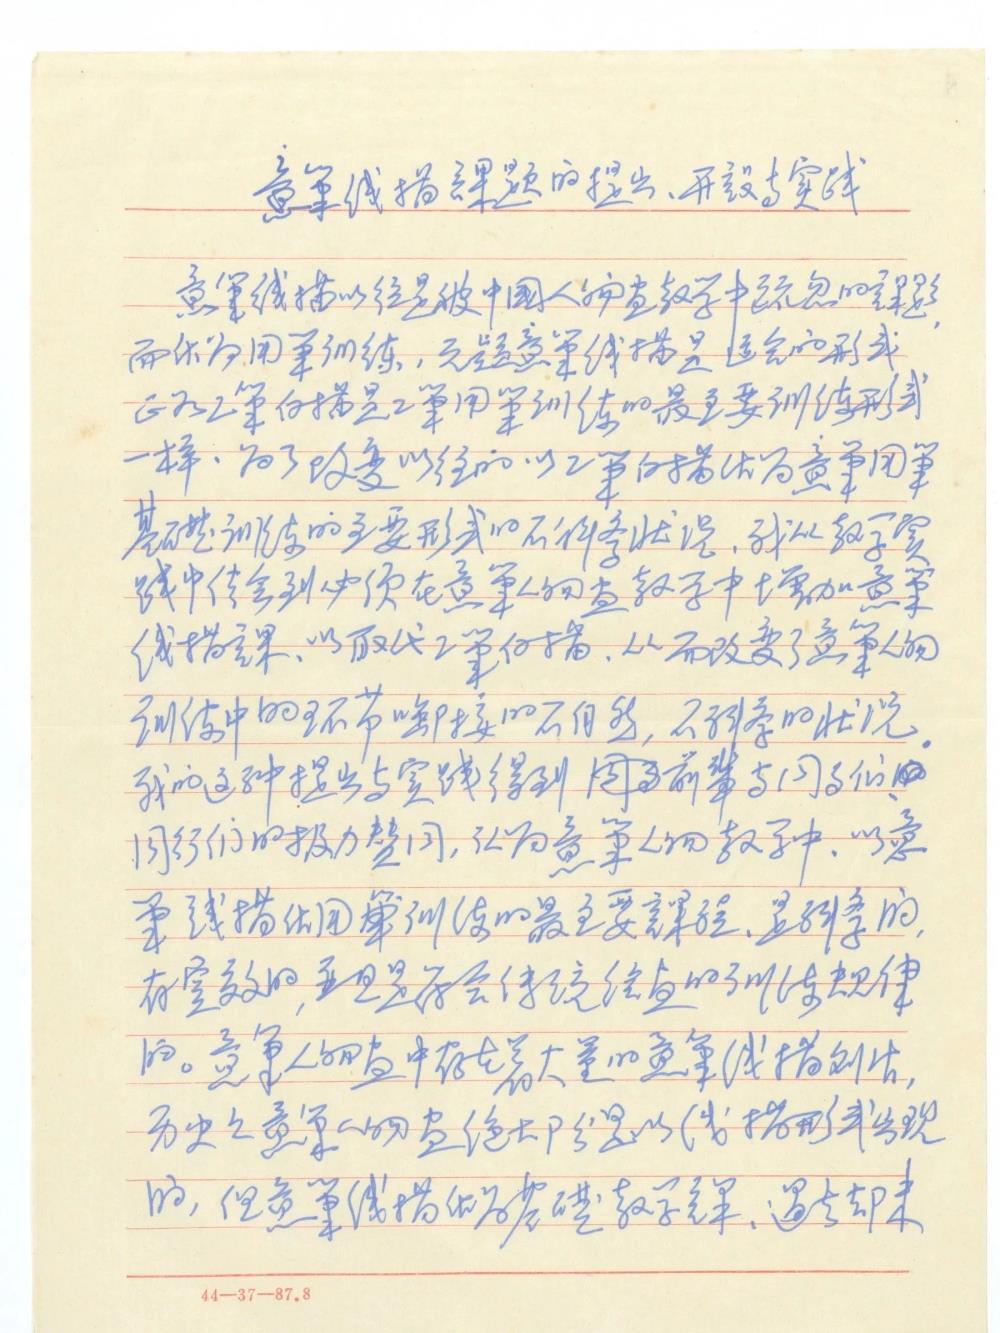 意筆线描課题的提出、开設与实践
意筆线描以往是被中国人物画教学中疏忽的課题,
而作为用筆训练,无疑意筆线描是适合的形式
正如工筆白描是工筆用筆训练的最主要训练形式
一样、为了改变以往的以工筆白描作为意筆用筆
基礎训练的主要形式的不科学状况、我从教学实
践中体会到必须在意筆人物画教学中增加意筆
线描課、以取代工筆白描、从而改变了意筆人物
训练中的环节啣接的不自然,不科学的状况。
我的这种提出与实践得到国画前辈与同事们
同行们的极力赞同,认为意筆人物教学中、以意
筆线描作用筆训练的最主要課程、是科学的,
有实效的,并且是符合传统绘画的训练规律
的。意筆人物画中存在着大量的意筆线描创作,
历史上意筆人物画绝大部分是以线描形式出现
的,但意筆线描作为基礎教学課、过去却未
44—37—87.8